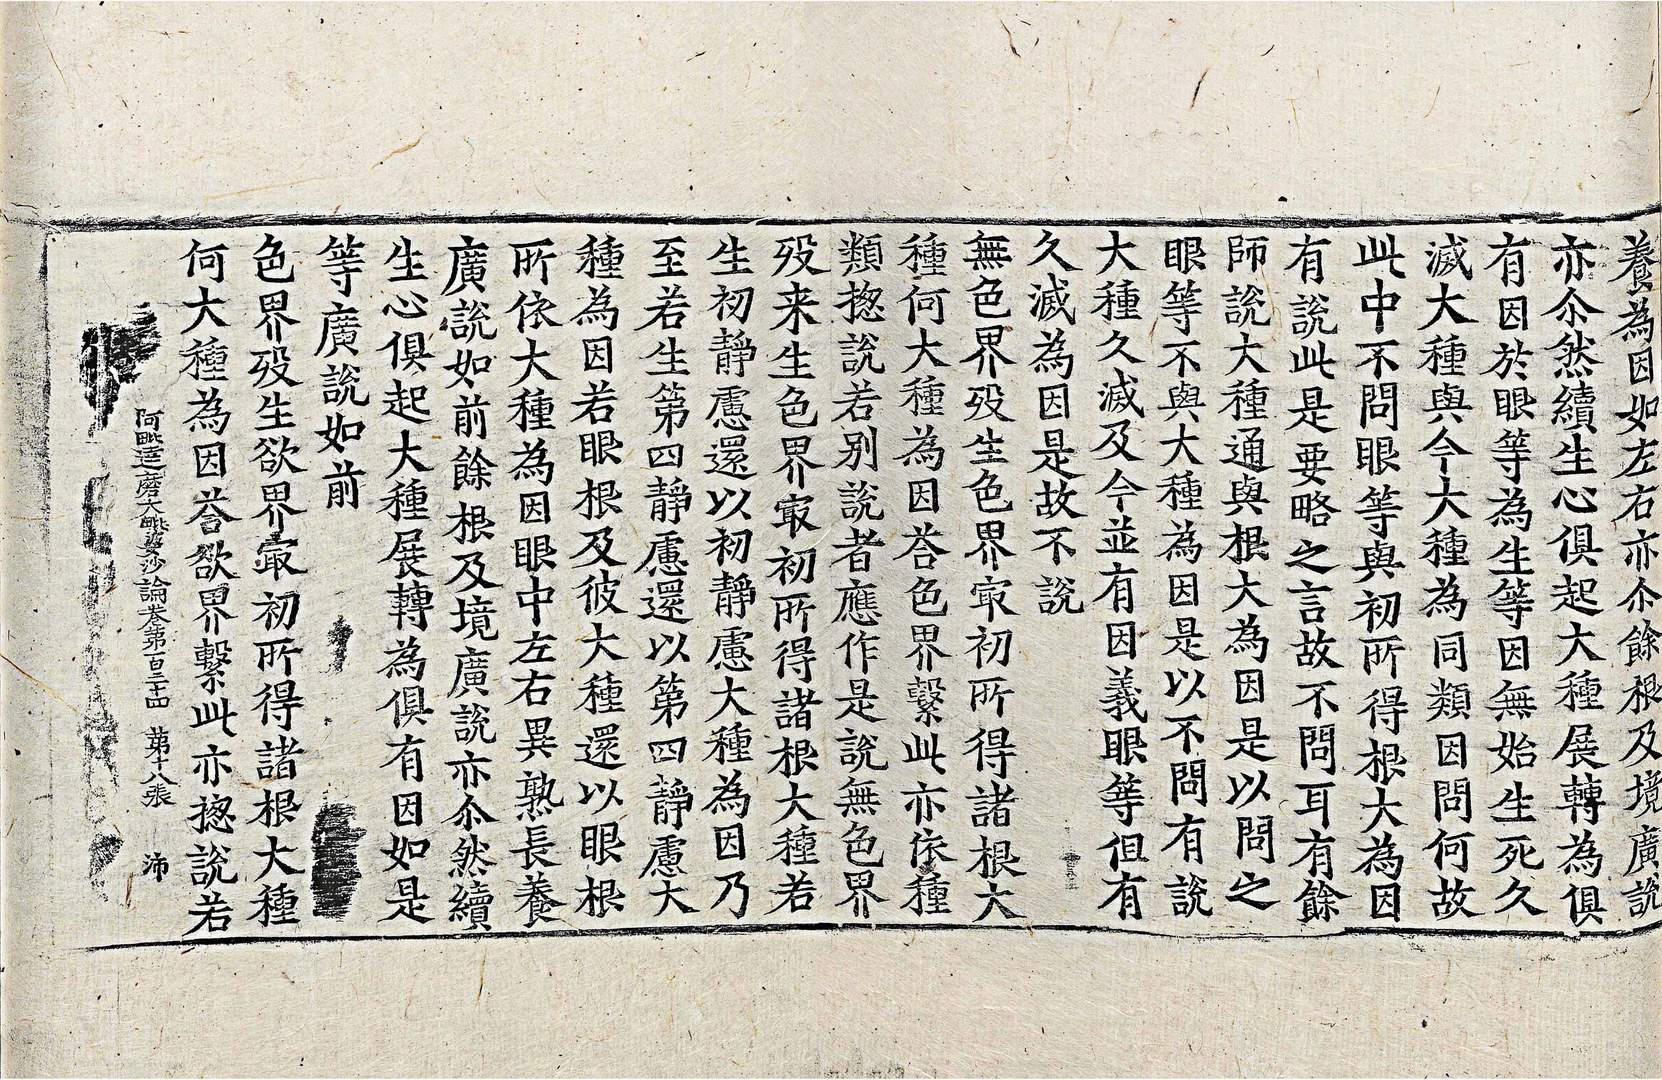 養為因如左右亦尒餘根及境廣說
亦尒然續生心俱起大種展轉為俱
有因於眼等為生等因無始生死久
滅大種與今大種為同類因問何故
此中不問眼等與初所得根大為因
有說此是要略之言故不問耳有餘
師說大種通與根大為因是以問之
眼等不與大種為因是以不問有說
大種久滅及今並有因義眼等但有
久滅為因是故不說
無色界歿生色界冣初所得諸根大
種何大種為因荅色界繫此亦依種
類揔說若別說者應作是說無色界
歿来生色界冣初所得諸根大種若
生初靜慮還以初靜慮大種為因乃
至若生第四靜慮還以第四靜慮大
種為因若眼根及彼大種還以眼根
所依大種為因眼中左右異熟長養
廣說如前餘根及境廣說亦尒然續
生心俱起大種展轉為俱有因如是
等廣說如前
色界歿生欲界冣初所得諸根大種
何大種為因荅欲界繫此亦揔說若
阿毗達磨大毗婆沙論卷第一百三十四 第十八張 沛